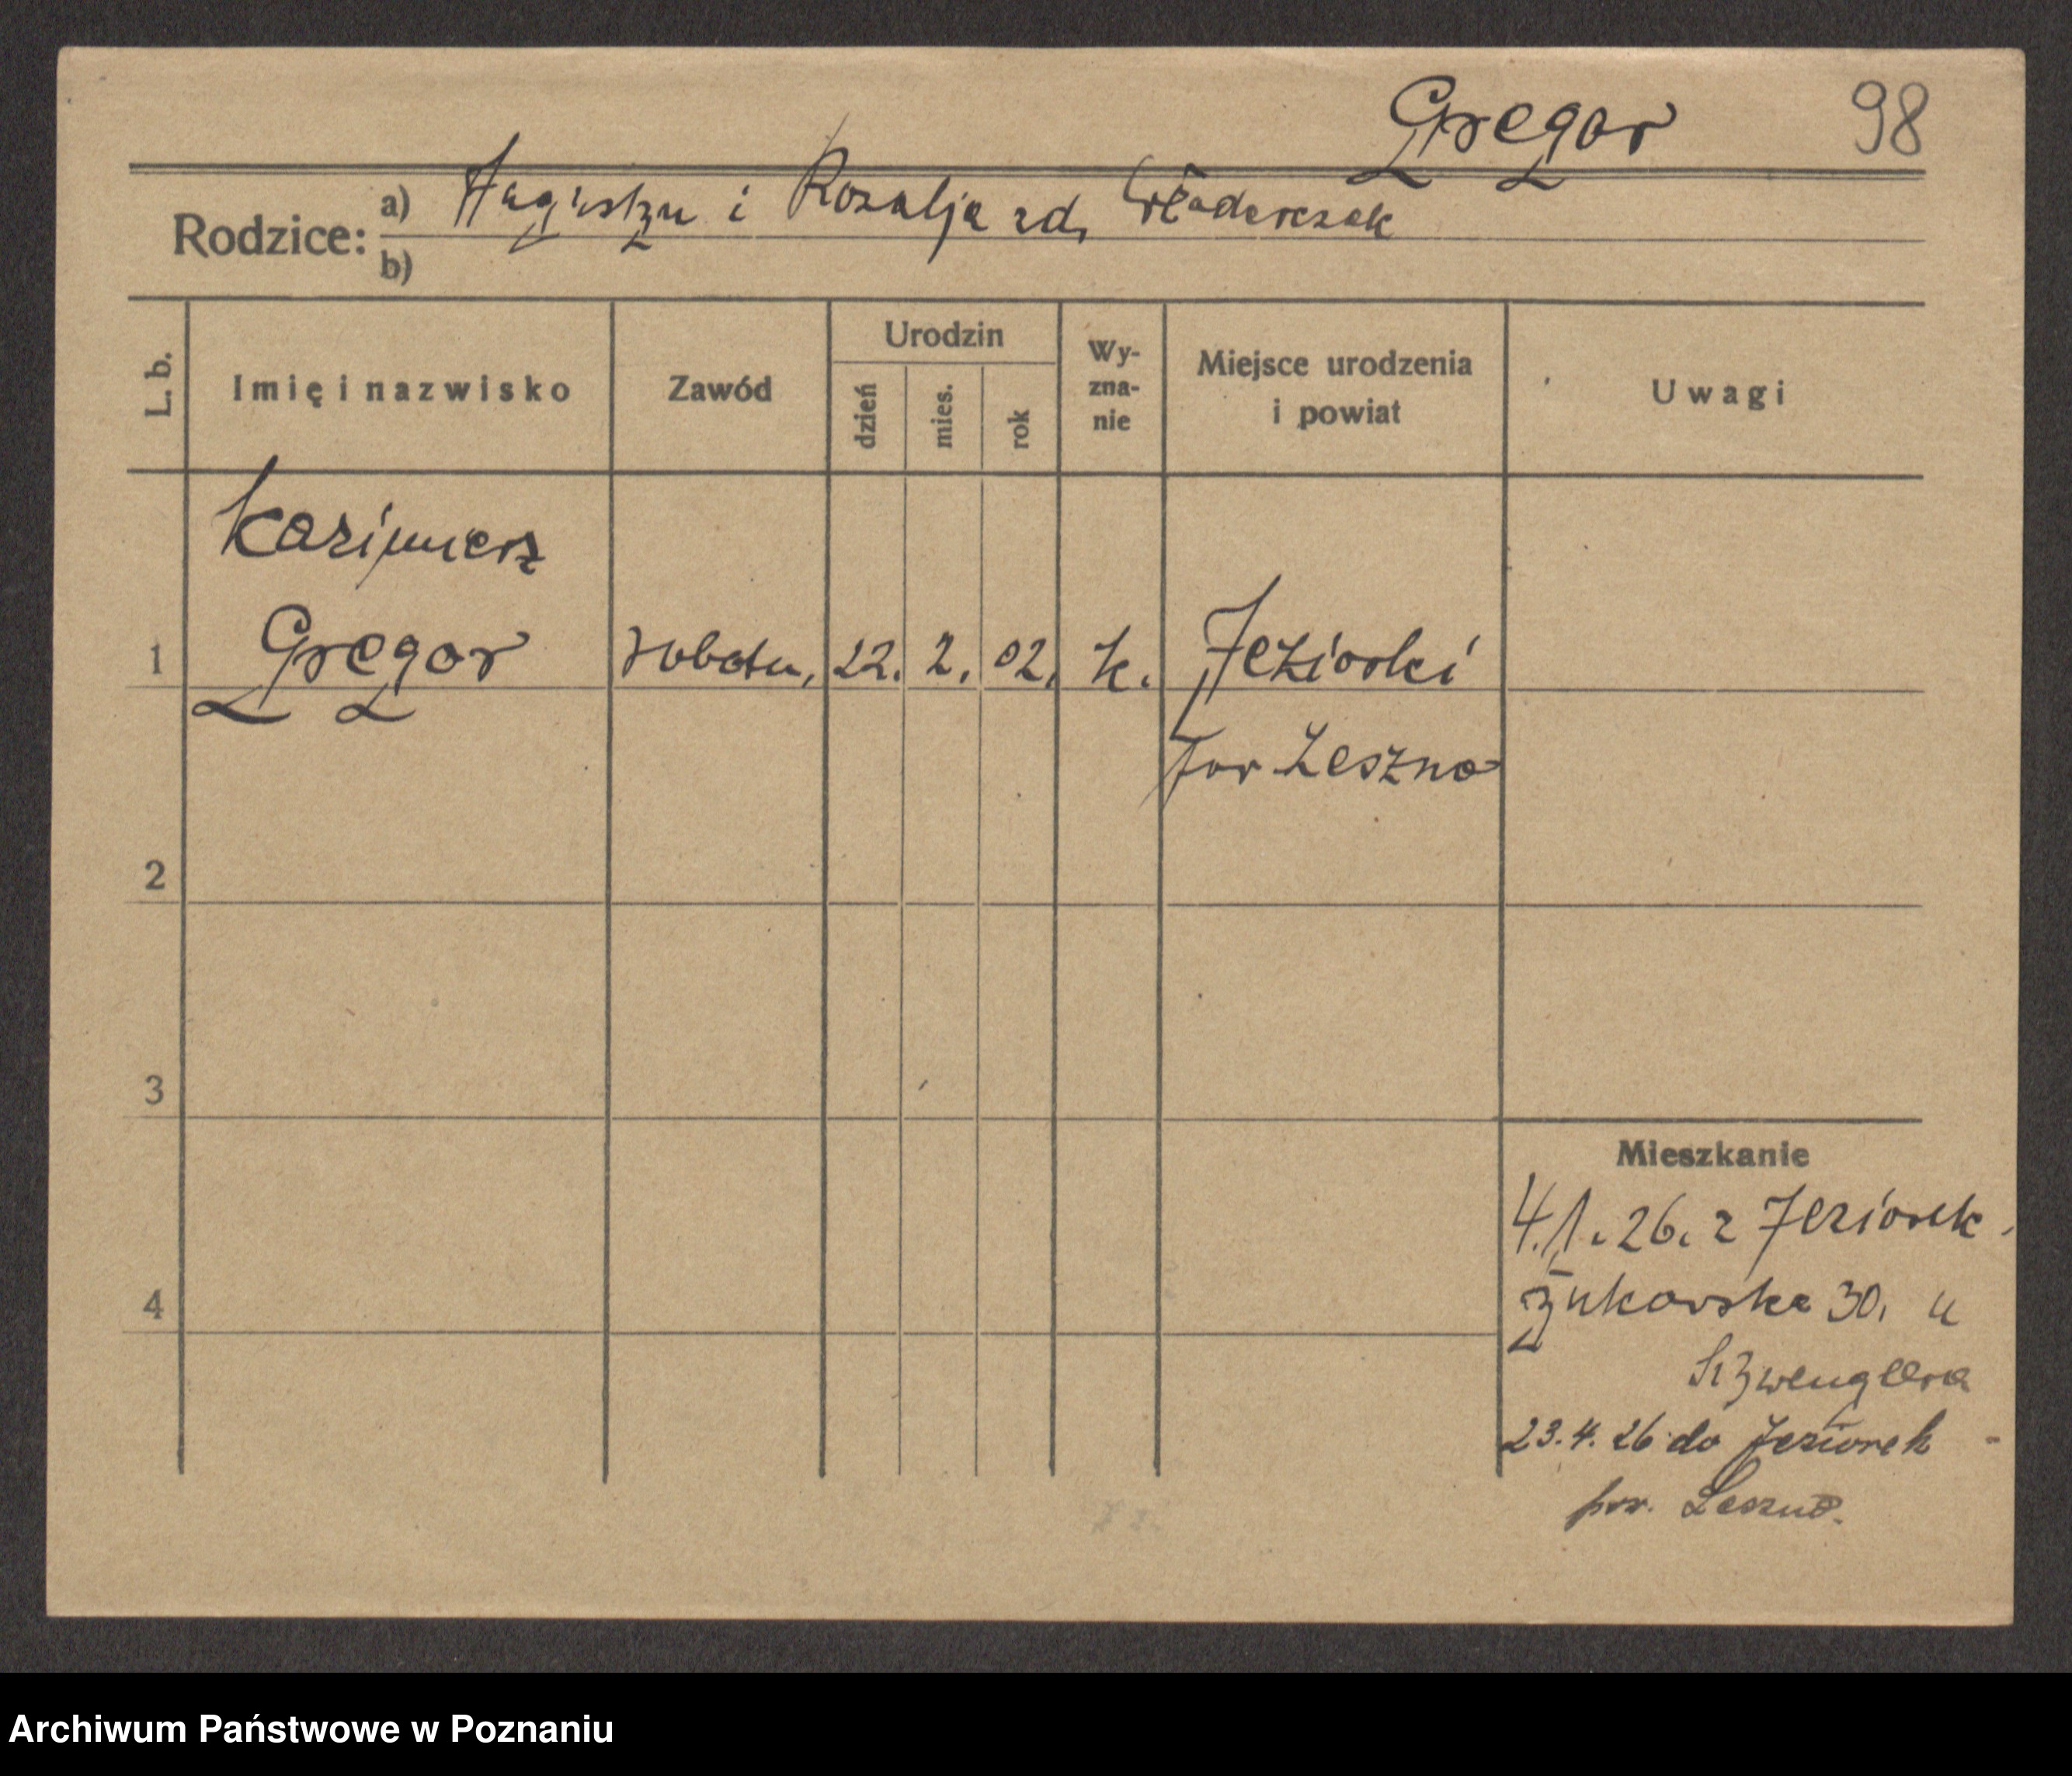 Gregor 98
Rodzice: a) Augustyn i Rozalja zd. Właderczak
b)
L. b. Imię i nazwisko Zawód Urodzin dzień mies. rok Wy-zna-nie Miejsce urodzenia i powiat Uwagi
Kazimierz
1 Gregor robotn. 22. 2. 02. k. Jeziorki
pow Leszno
2
3
Mieszkanie
4.1.26. z Jeziorek
4 Żukowska 30. u
Szwenglera
23.4.26 do Jeziorek -
pow. Leszno.
Archiwum Państwowe w Poznaniu